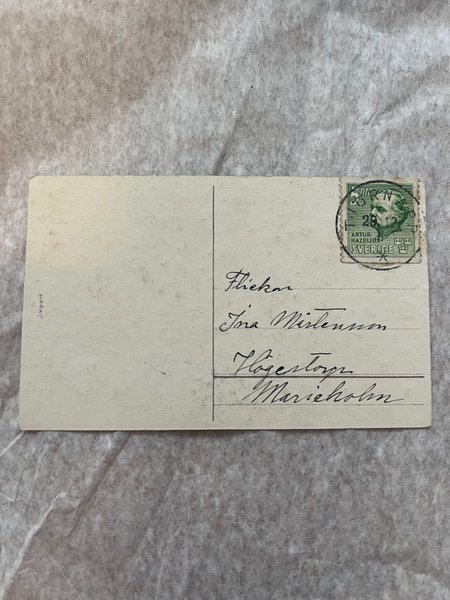 5
29 12
ARTUR
HAZELIUS
SVERIGE
Flickan
Ina Mårtensson
Högestorp
Marieholm